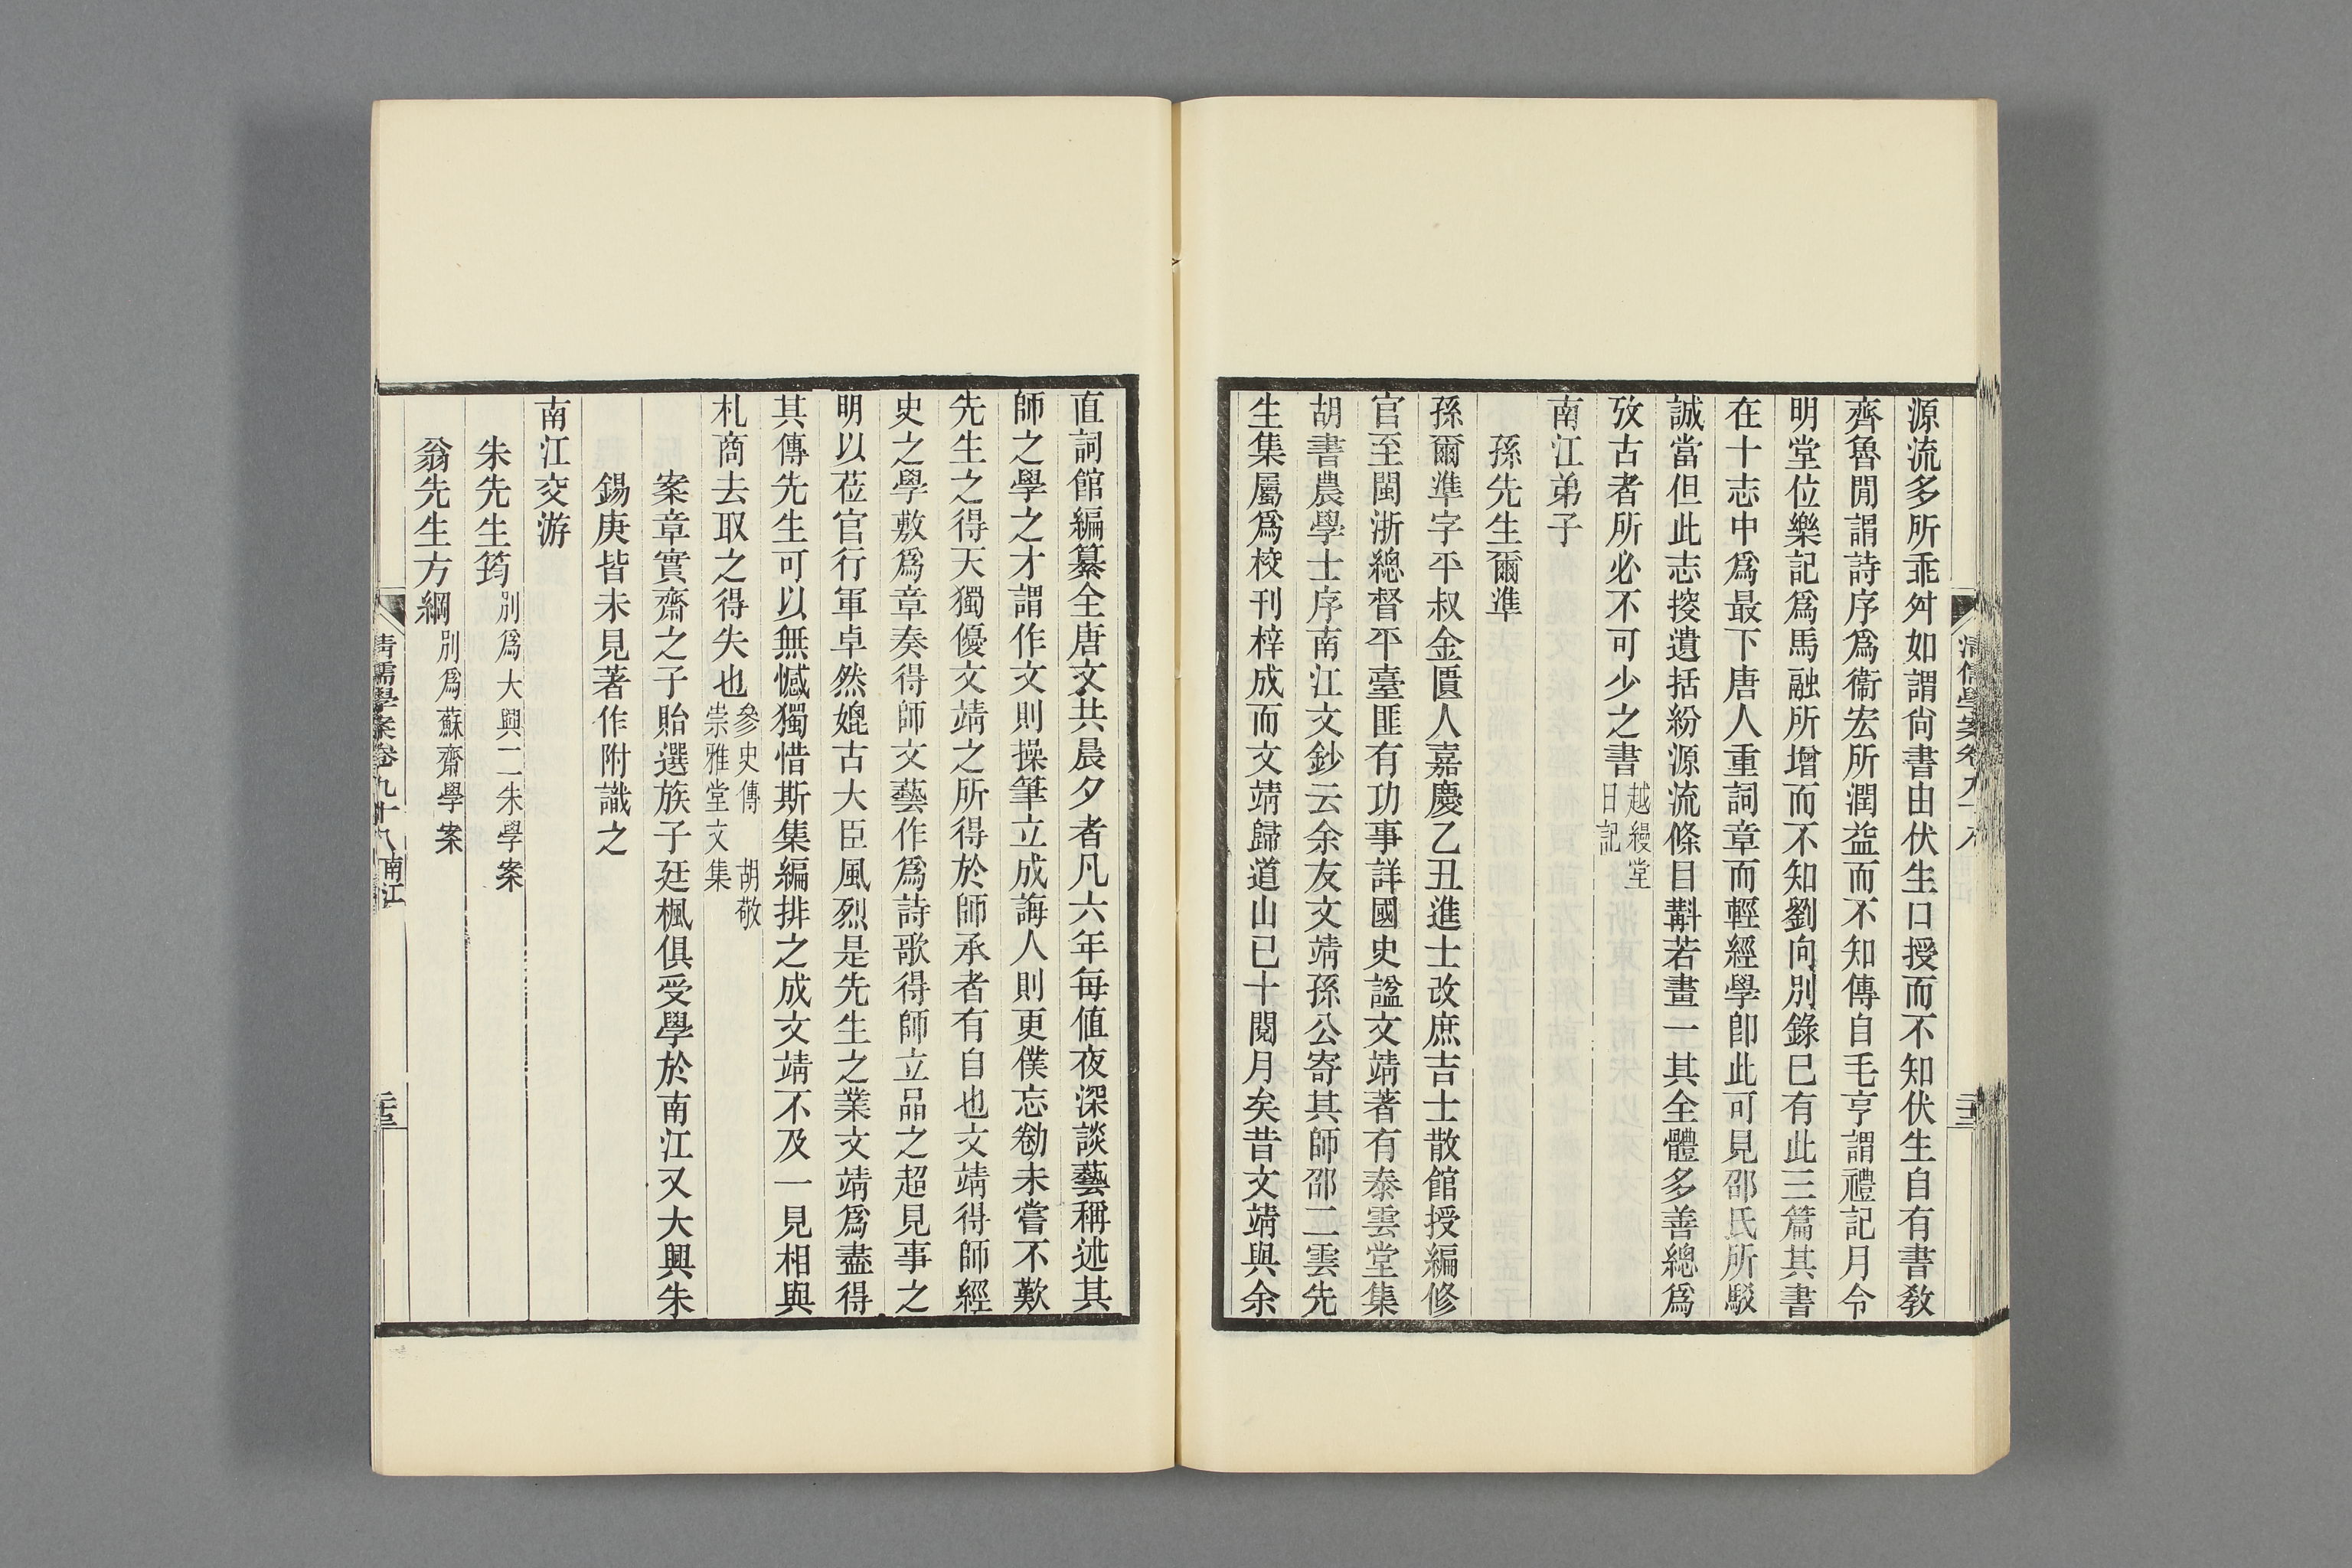 源流多所乖舛如謂尙書由伏生口授而不知伏生自有書敎
齊魯閒謂詩序爲衞宏所潤益而不知傳自毛亨謂禮記月令
明堂位樂記爲馬融所增而不知劉向別錄已有此三篇其書
在十志中爲最下唐人重詞章而輕經學卽此可見邵氏所駁
誠當但此志挍遺括紛源流條目斠若畫一其全體多善總爲
攷古者所必不可少之書越縵堂日記
南江弟子
孫先生爾準
孫爾準字平叔金匱人嘉慶乙丑進士改庶吉士散館授編修
官至閩浙總督平臺匪有功事詳國史諡文靖著有泰雲堂集
胡書農學士序南江文鈔云余友文靖孫公寄其師邵二雲先
生集屬爲校刊梓成而文靖歸道山已十閱月矣昔文靖與余
直詞館編纂全唐文共晨夕者凡六年每値夜深談藝稱述其
師之學之才謂作文則操筆立成誨人則更僕忘勌未嘗不歎
先生之得天獨優文靖之所得於師承者有自也文靖得師經
史之學敷爲章奏得師文藝作爲詩歌得師立品之超見事之
明以莅官行軍卓然媲古大臣風烈是先生之業文靖爲盡得
其傳先生可以無憾獨惜斯集編排之成文靖不及一見相與
札商去取之得失也參史傳 胡敬崇雅堂文集
案章實齋之子貽選族子廷楓俱受學於南江又大興朱
錫庚皆未見著作附識之
南江交游
朱先生筠別爲大興二朱學案
翁先生方綱別爲蘇齋學案
淸儒學案卷九十八 南江